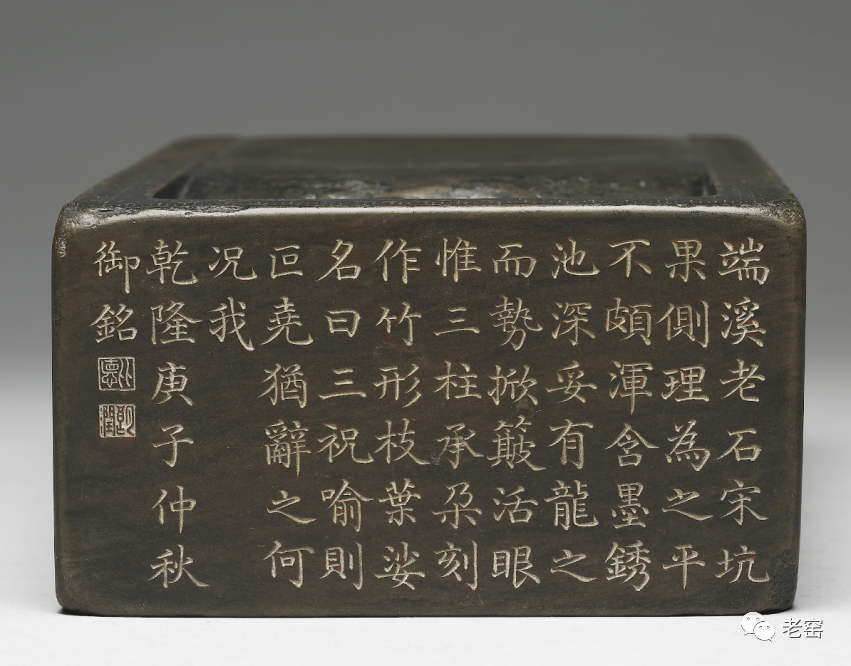 端溪老石宋坑
果側理為之平
不頗渾含墨銹
池深妥有龍之
而勢掀簸活眼
惟三柱承朶刻
作竹形枝葉娑
名曰三祝喻則
叵堯猶辭之何
况我
乾隆庚子仲秋
御銘
比惪
朗潤
老窑